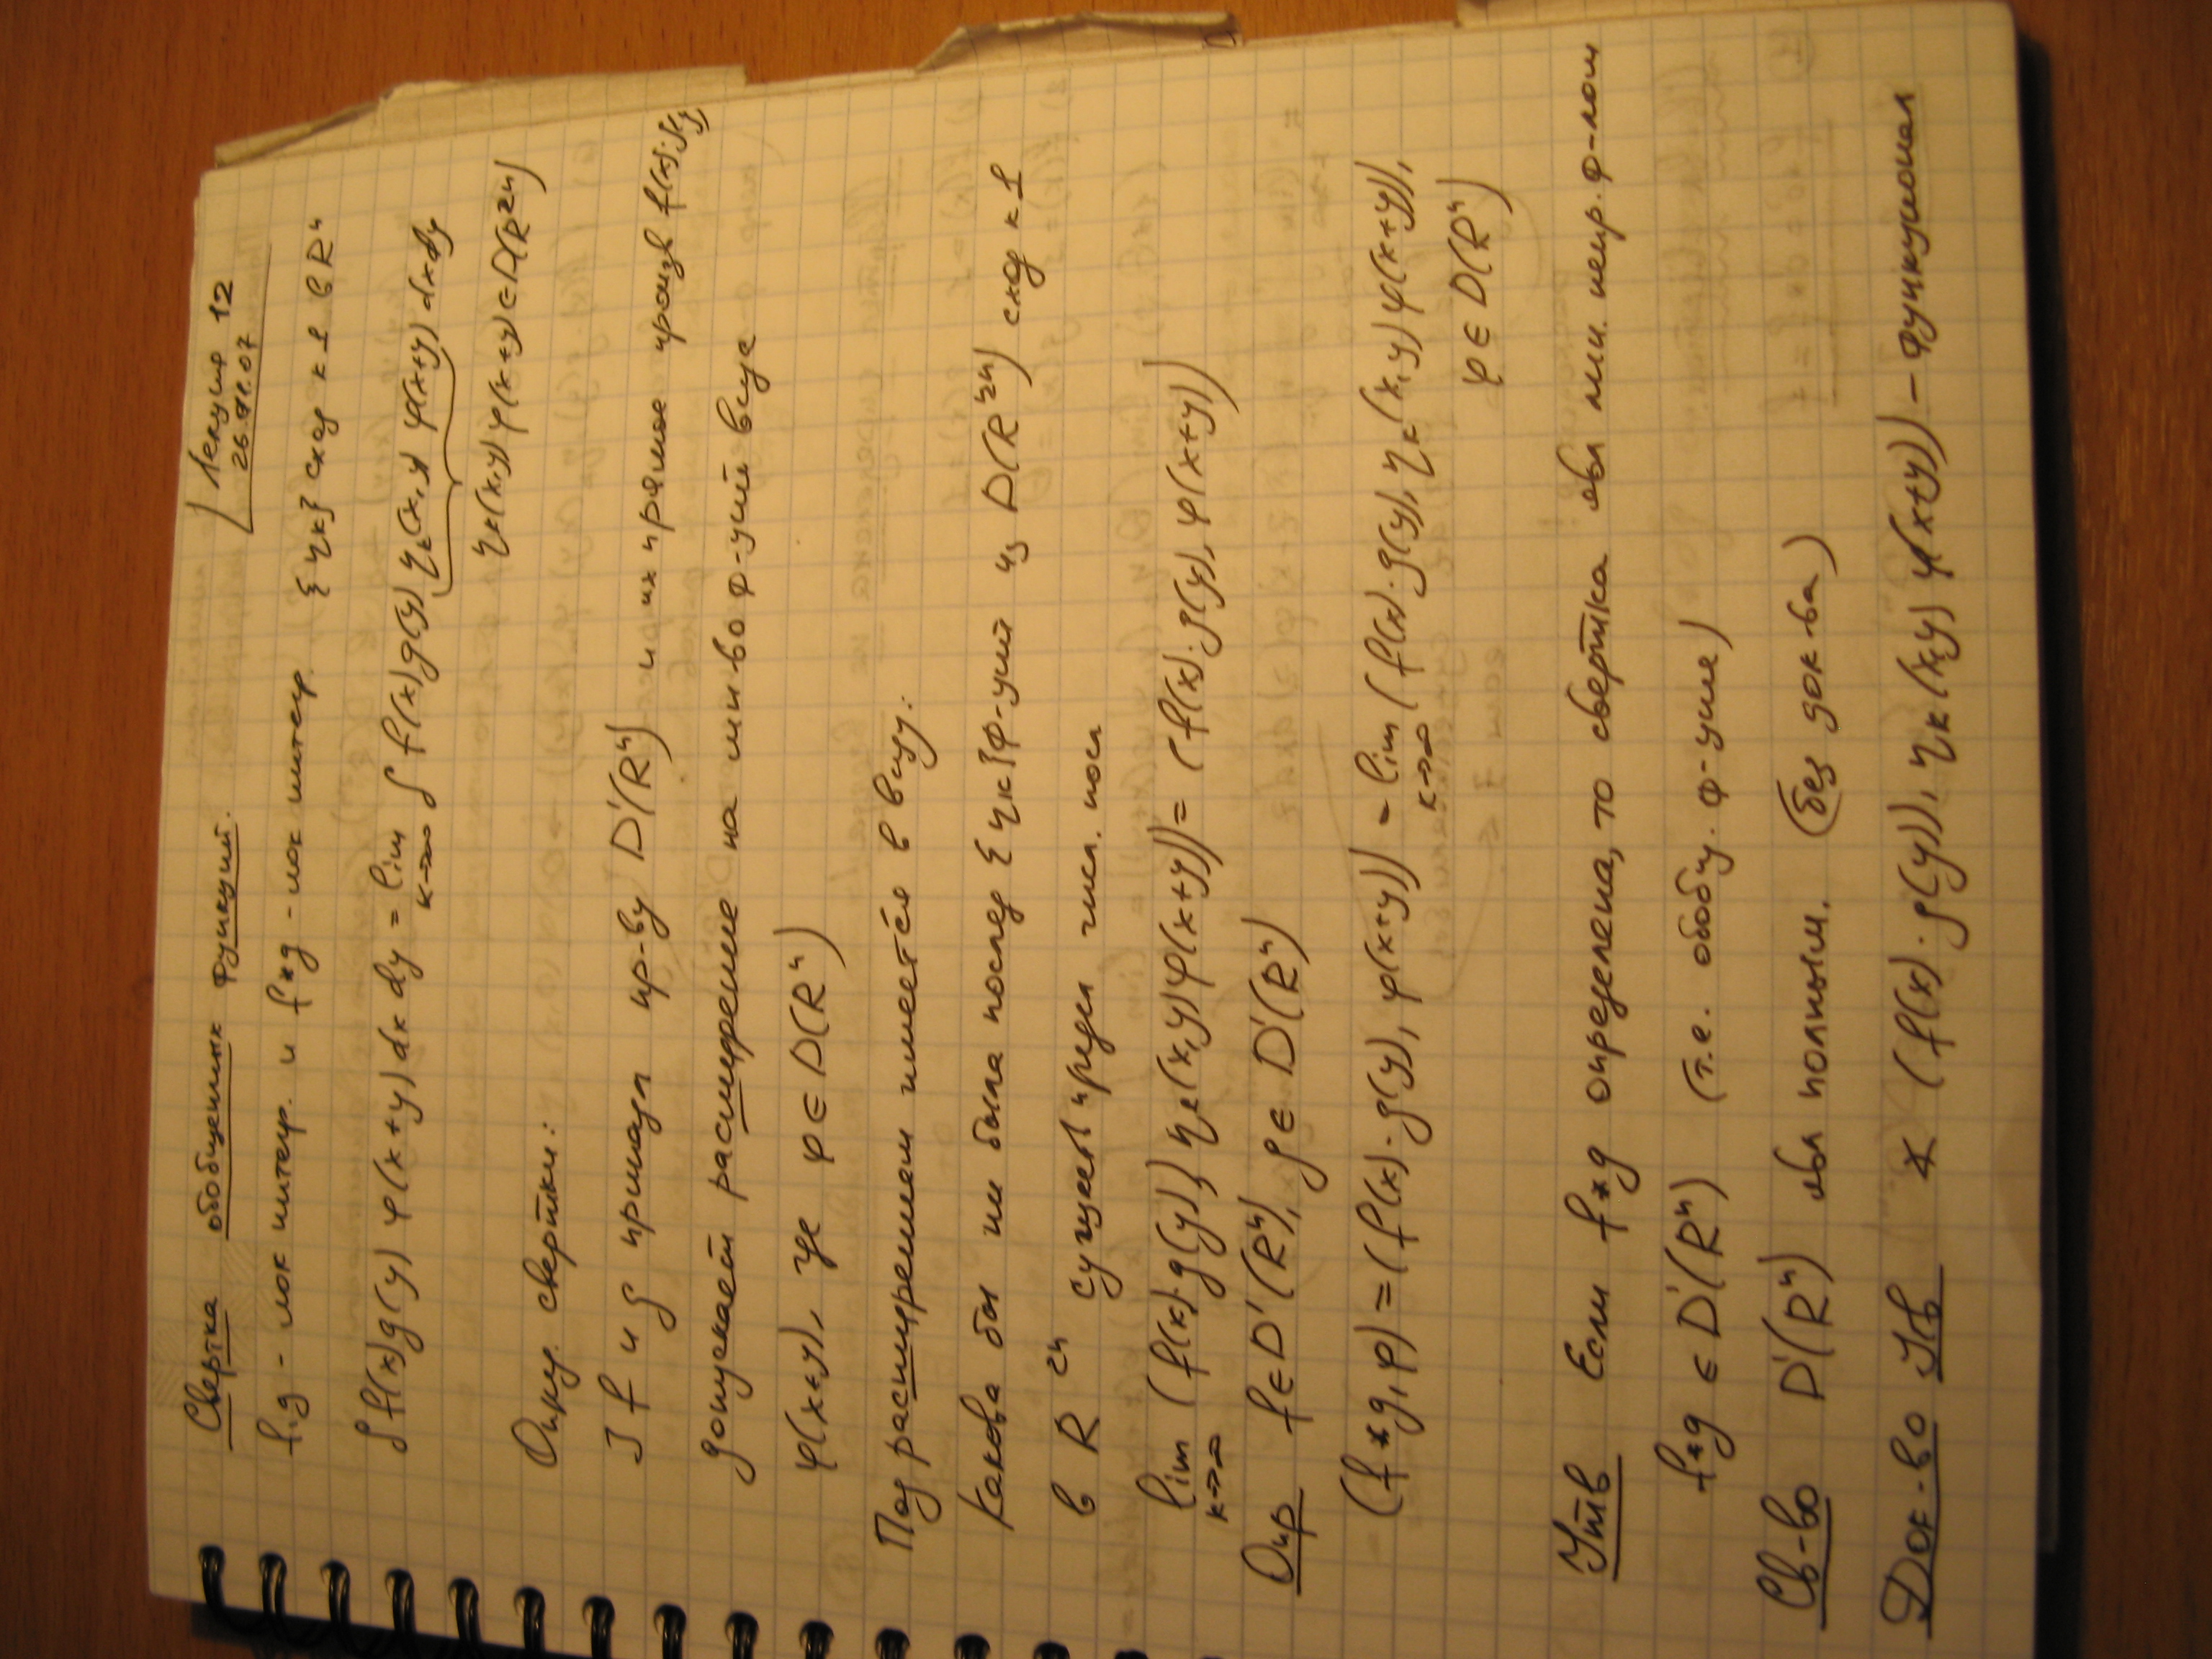 Лекция 12
26.11.07
Свертка обобщенных функций.
f, g - лок интегр. и f*g - лок интегр. {η_k} сход к 1 в R^n
∫ f(x)g(y) φ(x+y) dx dy = lim_{k→∞} ∫ f(x)g(y) η_k(x,y) φ(x+y) dx dy
η_k(x,y) φ(x+y) ∈ D(R^{2n})
Опр. свертки:
] f и g принадл пр-ву D'(R^n) и их прямое произв f(x)·g(y)
допускает расширение на мн-во ф-ций вида
φ(x+y), где φ ∈ D(R^n)
Под расширением имеется в виду:
Какова бы ни была послед {η_k} ф-ций из D(R^{2n}) сход к 1
в R^{2n} существ предел числ. посл
lim_{k→∞} (f(x)·g(y), η_k(x,y)φ(x+y)) = (f(x)·g(y), φ(x+y))
Опр f ∈ D'(R^n), g ∈ D'(R^n)
(f*g, φ) = (f(x)·g(y), φ(x+y)) = lim_{k→∞} (f(x)·g(y), η_k(x,y) φ(x+y)),
φ ∈ D(R^n)
Утв Если f*g определена, то свертка явл лин. непр. ф-лом
f*g ∈ D'(R^n) (т.е. обобщ. ф-цией)
Св-во D'(R^n) явл полным. (без док-ва)
Док-во Утв (f(x)·g(y)), η_k(x,y) φ(x+y)) - функционал